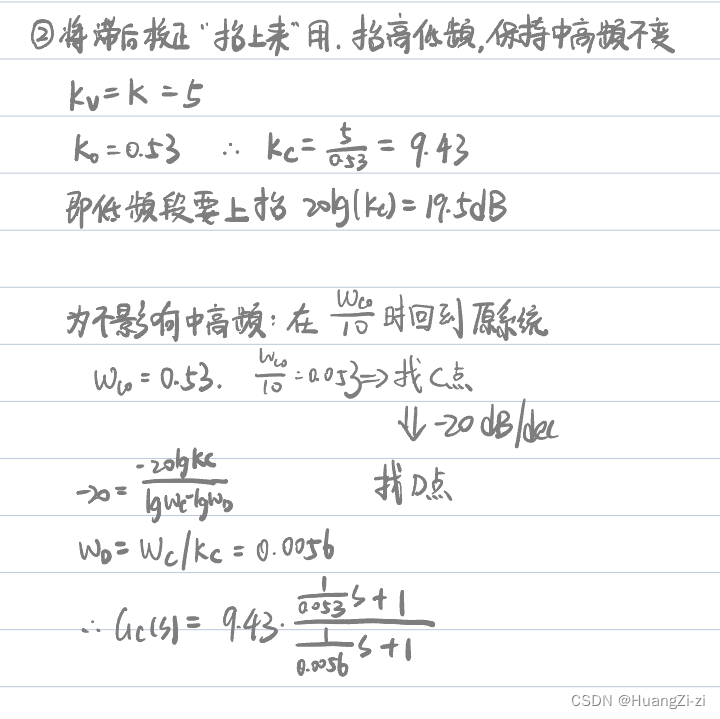 ②将滞后校正“抬上来”用.抬高低频,保持中高频不变
Kv=K=5
K₀=0.53 ∴ Kc=5/0.53=9.43
即低频段要上抬 20lg(Kc)=19.5dB
为不影响中高频:在 Wco/10 时回到原系统
Wco=0.53. Wco/10=0.053⇒找C点
⇓-20dB/dec
-20=-20lgKc/lgWc-lgWD 找D点
WD=Wc/Kc=0.0056
∴ Gc(s)=9.43·(1/0.053 s+1)/(1/0.0056 s+1)
CSDN @HuangZi-zi